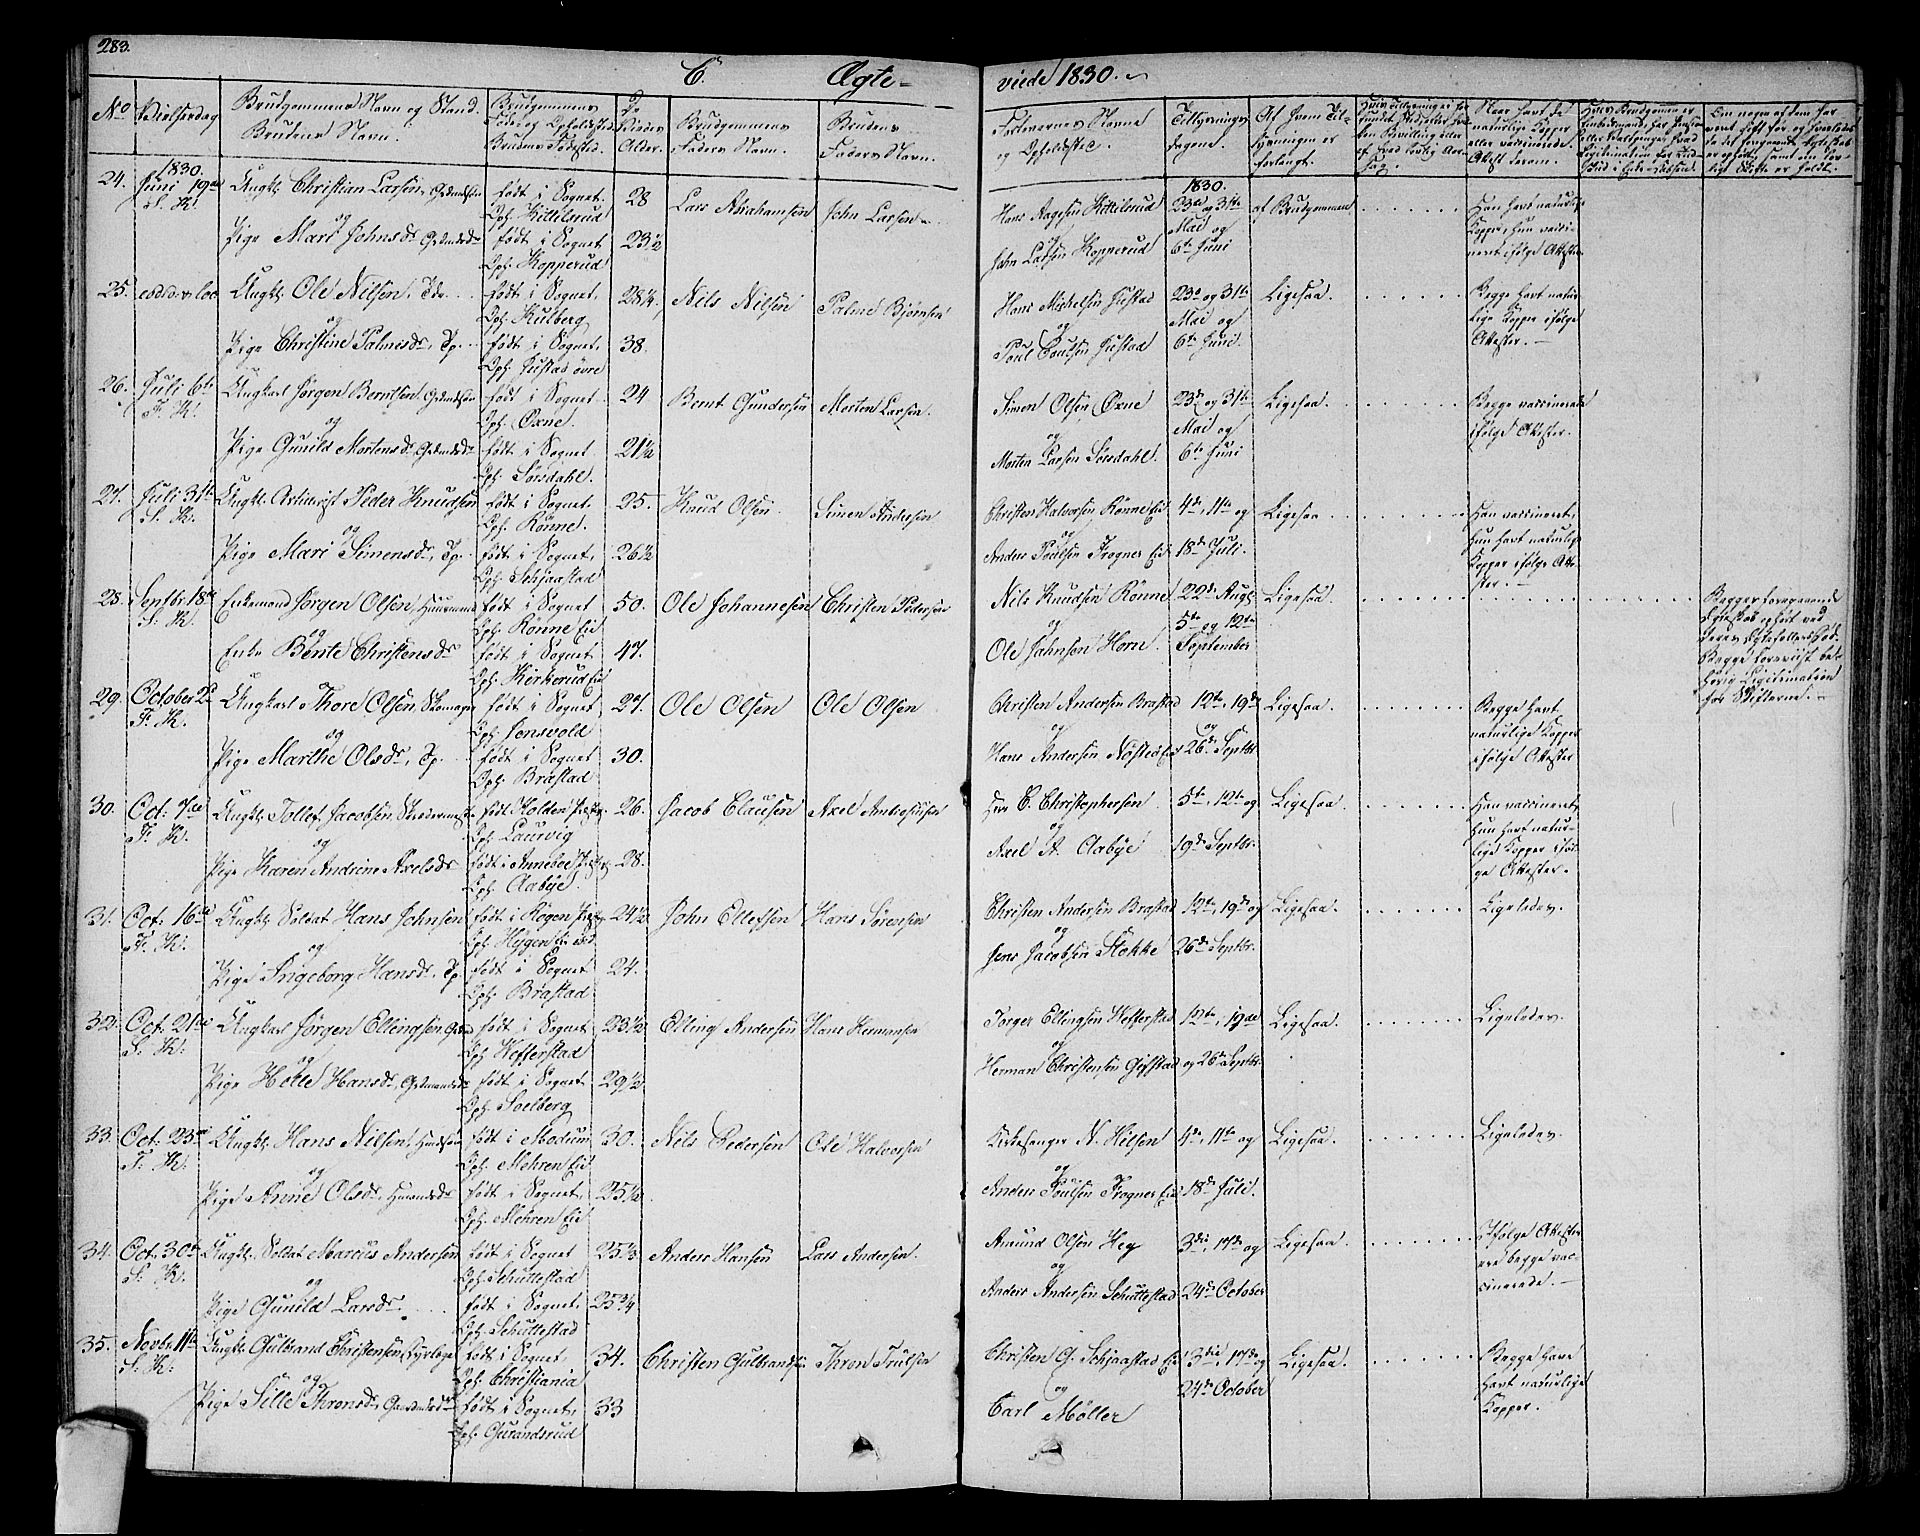 283.
C. Ægte-
viede 1830.
No
Vielsesdag
Brudgommens Navn og Stand.
Brudens Navn.
Brudgommens
Føde og Opholdssted
Brudens Fødested.
De
Viedes
Alder.
Brudgommens
Faders Navn.
Brudens
Faders Navn.
Forlovernes Navne
og Opholdsted
Tillysnings
dagene.
Af hvem Til-
lysningen er
forlangt.
Naar havt de
naturlige Kopper
eller vaccinerede.
Attest derom.
24.
1830.
Juni 19de
S. K.
Ungkl. Christian Larsen, Grdmdsøn
og
Pige Mari Johnsdr Grdmdsdr
født i Sognet
Oph. Kittilsrud
født i Sognet
Oph. Kopperud
28
23½
Lars Abrahamsen
John Larsen
Hans Aagesen Kittilsrud
og
John Larsen Kopperud
1830.
23de og 31te
Mai og
6te Juni
af Brudgommen
Han havt naturlige
Kopper, hun vacci-
neret ifølge Attester
25.
eodem loc
Ungkl. Ole Nilsen, Tdr.
og
Pige Christine Palmesdr, Tp.
født i Sognet.
Oph. Kulberg
født i Sognet,
Oph. Justad øvre
28¼
38.
Nils Nilsen
Palme Bjørnsen
Hans Michelsen Justad
og
Poul Poulsen Justad
23de og 31te
Mai og
6te Juni.
Ligesaa.
Begge havt natur-
lige Kopper ifølge
Attester.
26.
Juli 6te
F. K.
Ungkarl Jørgen Berntsen, Grdmdsøn
og
Pige Gunild Mortensdr Grdmdsdr
født i Sognet
Oph. Oxne.
født i Sognet
Oph. Sørsdahl.
24
21½
Bernt Gundersen
Morten Larsen.
Simen Olsen Oxne
og
Morten Larsen Sørsdahl.
23de og 31te
Mai og
6te Juni
Ligesaa.
Begge vaccinerede
ifølge Attester.
27.
Juli 31te
S. K.
Ungkl. Artillerist Peder Knudsen
og
Pige Mari Simensdr, Tp.
født i Sognet
Oph. Rønne.
født i Sognet,
Oph. Schjaastad
25.
26½
Knud Olsen
Simen Andersen
Christen Halvorsen Rønne Eie
og
Anders Poulsen Frogner Eie
4de, 11te og
18de Juli.
Ligesaa.
Han vaccineret,
Hun havt naturlige
Kopper ifølge Atte-
ster.
28.
Septbr. 18de
S. K.
Enkemand Jørgen Olsen, Huusmand
og
Enke Bente Christensdr
født i Sognet
Oph. Rønne Eie
født i Sognet
Oph. Kirkerud Eie
50.
47.
Ole Johannesen
Christen Pedersen
Nils Knudsen Rønne
og
Ole Johnsen Horn.
22de Augs.
5te og 12te
September
Ligesaa.
Begges foregaaende
Egteskab ophørt ved
deres Egtefellers Død.
Begge foreviist be-
hørig Legitimation
for Skifterne.
29.
October 2de
F. K.
Ungkarl Thore Olsen, Skomager
og
Pige Marthe Olsdr, Tp.
født i Sognet
Oph. Jensvold
født i Sognet
Oph. Brastad
27.
30.
Ole Olsen
Ole Olsen
Christen Andersen Brastad
og
Hans Andersen Nøsted Eie
12te, 19de
og
26de Septbr.
Ligesaa.
Begge havt
naturlige Kopper
ifølge Attester
30.
Oct: 7de
F. K.
Ungkl. Tollef Jacobsen
og
Pige Karen Andrine Axelsdr
født i Holden Præstg.
Oph. Laurvig
født i Anneboe Præstg.
Oph. Aabye.
26.
28.
Jacob Clausen
Axel Ambrosiusen
Hr. C. Christophersen
og
Axel A. Aabye
5te, 12te og
19de Septbr.
Ligesaa.
Han vaccineret,
Hun havt natur-
lige Kopper iføl-
ge Attester.
31.
Oct: 16de
F. K.
Ungkl. Soldat Hans Johnsen
og
Pige Ingeborg Hansdr, Tp.
født i Røgen Præstg.
født i Sognet
Oph. Brastad
24½
24.
John Ellefsen
Hans Sørensen
Christen Andersen Brastad
og
Jens Jacobsen Stokke
12te, 19de og
26de Septbr.
Ligesaa.
Ligeledes.
32.
Oct: 21de
S. K.
Ungkarl Jørgen Ellingsen,
og
Pige Helle Hansdr, Grdmandsdr
født i Sognet
Oph. Hefferstad
født i Sognet
Oph. Soelberg
23½
29½
Elling Andersen
Hans Hermansen
Torger Ellingsen Hefferstad
og
Herman Christensen Gifstad
12te, 19de
og 26de Septbr.
Ligesaa.
Ligeledes.
33.
Oct: 23de
T. K.
Ungkl. Hans Nilsen,
og
Pige Anne Olsdr, Huusmdsdr
født i Modum
Oph. Mehren Eie
født i Sognet,
Oph. Mehren Eie
30.
25½
Nils Pedersen
Ole Halvorsen
Kirkesanger N. Nilsen
og
Anders Poulsen Frogner Eie
4de, 11te og
18de Juli.
Ligesaa.
Ligeledes.
34.
Oct: 30te
S. K.
Ungkl. Soldat Marcus Andersen
og
Pige Gunild Larsdr
født i Sognet
Oph. Schuttestad
født i Sognet,
Oph. Schuttestad
25½
25¾
Anders Hansen
Lars Andersen.
Amund Olsen Heg
og
Anders Andersen Schuttestad
3die, 17de og
24de October
Ligesaa.
Ifølge Attester
ere begge vac-
cinerede.
35.
Novbr. 11te
S. K.
Ungkl. Gulbrand Christensen,
og
Pige Sille Thronsdr, Gaardmdsdr
født i Sognet
Oph. Christiania
født i Sognet,
Oph. Gurandsrud
34.
33
Christen Gulbrands.
Thron Trulsen
Christen G. Schjaastad Eie
og
Carl Møller
3die, 17de og
24de October
Ligesaa.
Begge have
havt naturlige
Kopper.